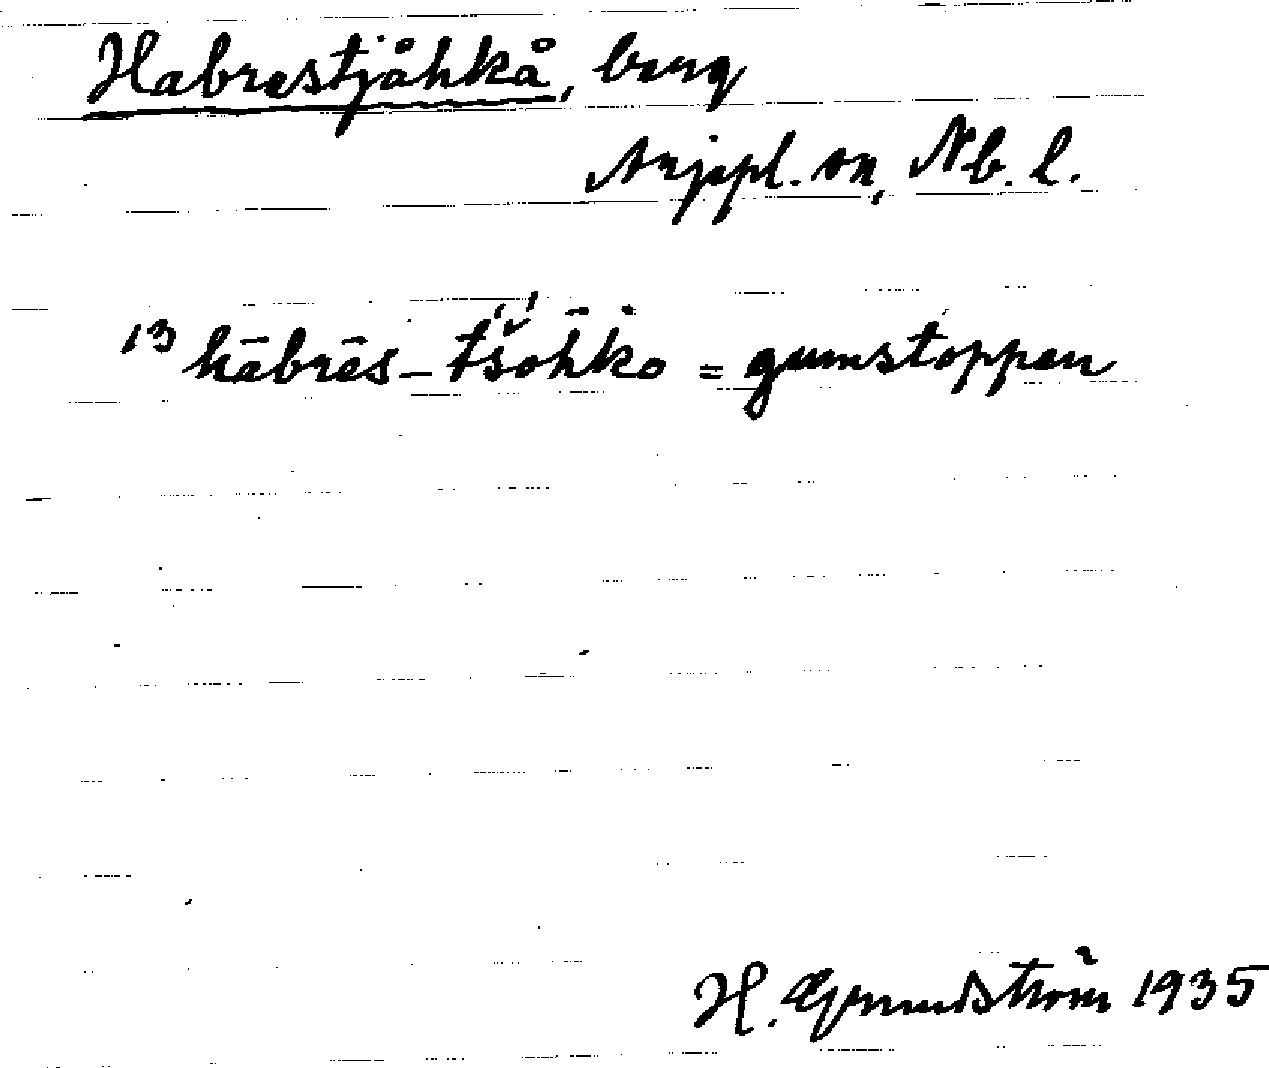 Habrestjåhkå, berg
Arjepl. sn, Nb. l.
13 hāb̄rēs-t́š́ōhko = gumstoppen
H. Grundström 1935